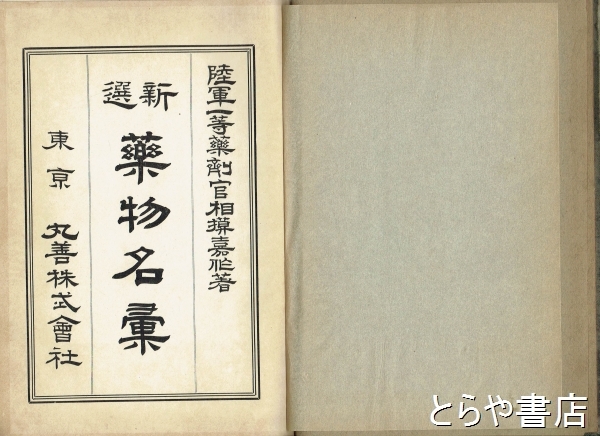 陸軍一等藥劑官相摸嘉作著
新選
藥物名彙
東京 丸善株式會社
とらや書店